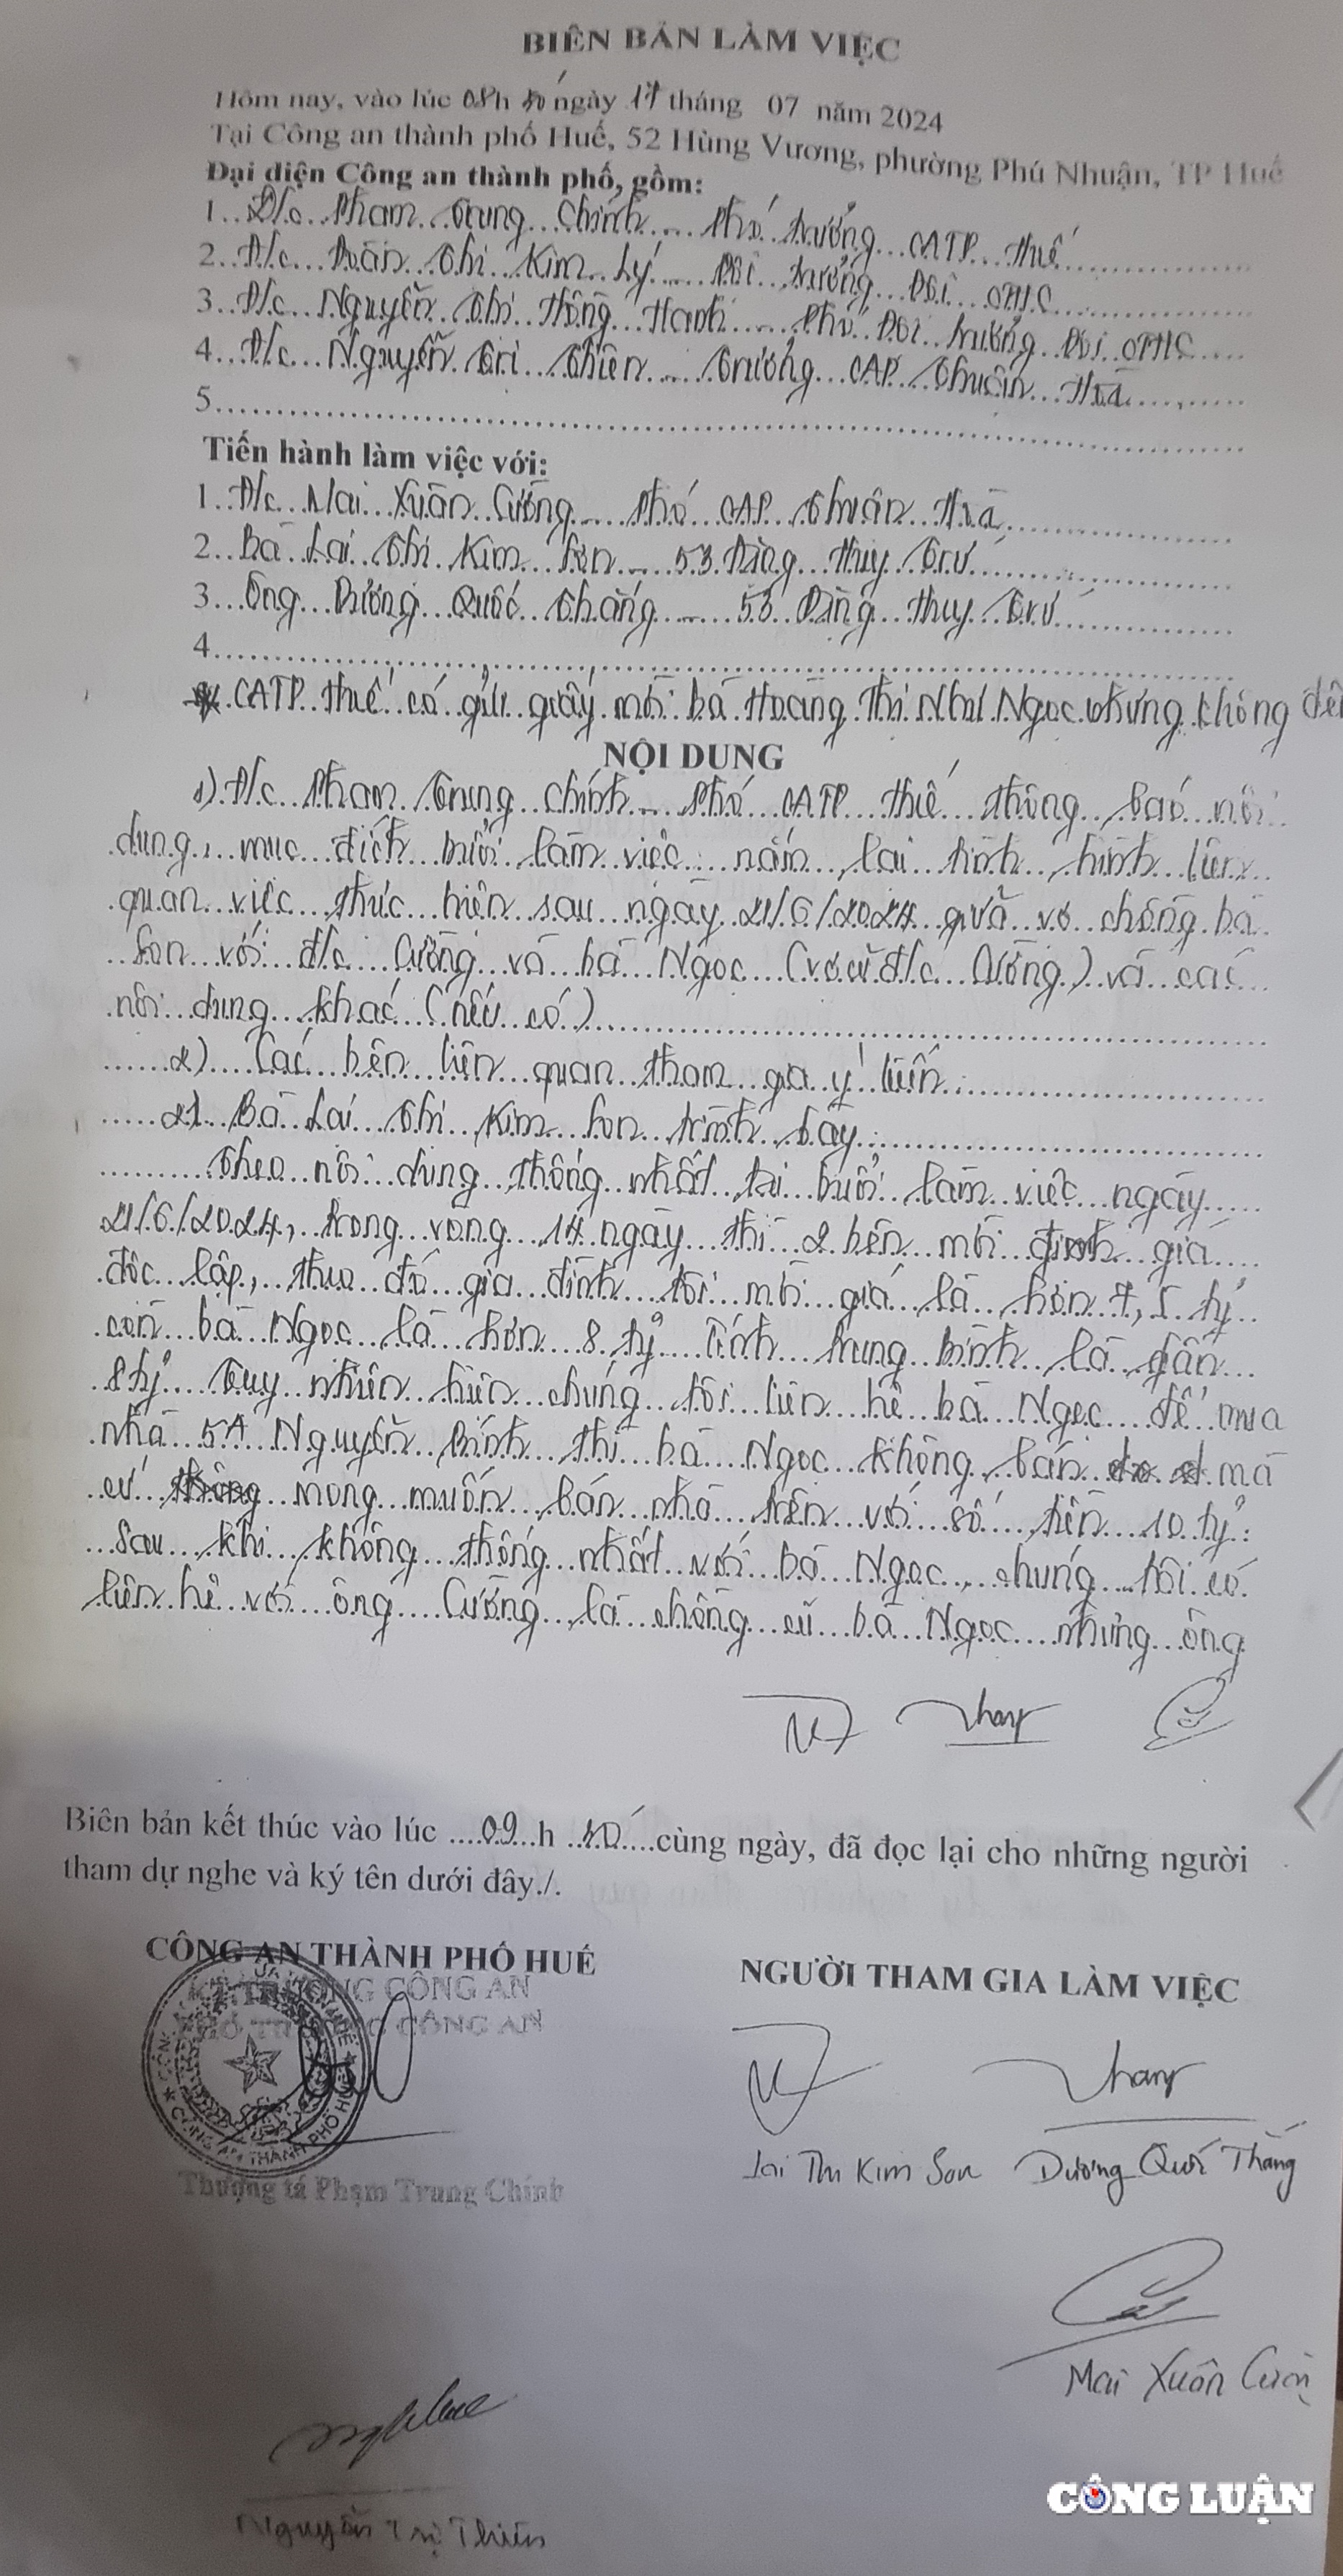 BIÊN BẢN LÀM VIỆC
Hôm nay, vào lúc 08h 30' ngày 17 tháng 07 năm 2024
Tại Công an thành phố Huế, 52 Hùng Vương, phường Phú Nhuận, TP Huế
Đại diện Công an thành phố, gồm:
1. Đ/c Phạm Trung Chính - Phó trưởng CATP Huế
2. Đ/c Đoàn Thị Kim Lý - Đội trưởng Đội QLHC
3. Đ/c Nguyễn Thị Hồng Hạnh - Phó Đội trưởng Đội QLHC
4. Đ/c Nguyễn Tri Thiên - Trưởng CAP Thuận Hoà
5.
Tiến hành làm việc với:
1. Đ/c Mai Xuân Cường - Phó CAP Thuận Hoà
2. Bà Lại Thị Kim Son - 53 Đặng Huy Trứ
3. Ông Dương Quốc Thắng - 53 Đặng Huy Trứ
4.
* CATP Huế có gửi giấy mời bà Hoàng Thị Như Ngọc nhưng không đến
NỘI DUNG
1) Đ/c Phạm Trung Chính - Phó CATP Huế thông báo nội
dung, mục đích buổi làm việc: nắm lại tình hình liên
quan việc thực hiện sau ngày 21/6/2024 giữa vợ chồng bà
Son với đ/c Cường và bà Ngọc (vợ cũ đ/c Cường) và các
nội dung khác (nếu có)
2) Các bên liên quan tham gia ý kiến:
2.1. Bà Lại Thị Kim Son trình bày:
Theo nội dung thống nhất tại buổi làm việc ngày
21/6/2024, trong vòng 14 ngày thì 2 bên mời định giá
độc lập, theo đó gia đình tôi mời giá là hơn 7,5 tỷ
còn bà Ngọc là hơn 8 tỷ. Tính trung bình là gần
8 tỷ. Tuy nhiên hiện chúng tôi liên hệ bà Ngọc để mua
nhà 5A Nguyễn Bính thì bà Ngọc không bán mà
cứ mong muốn bán nhà trên với số tiền 10 tỷ.
Sau khi không thống nhất với bà Ngọc, chúng tôi có
liên hệ với ông Cường là chồng cũ bà Ngọc nhưng ông
Biên bản kết thúc vào lúc ....09...h ..10'....cùng ngày, đã đọc lại cho những người
tham dự nghe và ký tên dưới đây./.
CÔNG AN THÀNH PHỐ HUẾ
KT.TRƯỞNG CÔNG AN
PHÓ TRƯỞNG CÔNG AN
CÔNG AN THÀNH PHỐ HUẾ
Thượng tá Phạm Trung Chính
NGƯỜI THAM GIA LÀM VIỆC
Lại Thị Kim Son Dương Quốc Thắng
Mai Xuân Cườn
Nguyễn Tri Thiên
CÔNG LUẬN